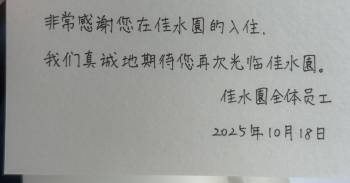 非常感谢您在佳水園的入住.
我们真诚地期待您再次光临佳水園。
佳水園全体员工
2025年10月18日